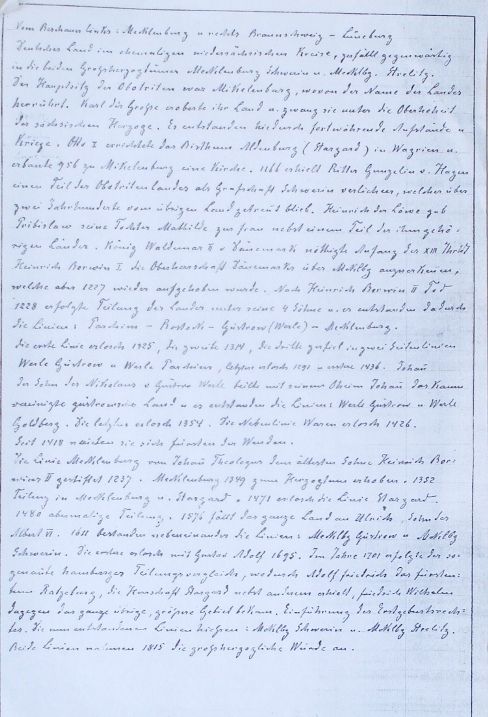 Vom Beschauer links: Mecklenburg u rechts Braunschweig - Lüneburg
Deutsches Land im ehemaligen niedersächsischen Kreise, zerfällt gegenwärtig
in die beiden Großherzogtümer Mecklenburg Schwerin u. Mecklbg. Strelitz.
Der Hauptsitz der Obotriten war Mikelenburg, wovon der Name des Landes
herrührt. Karl der Große eroberte ihr Land u. zwang sie unter die Oberhoheit
der sächsischen Herzoge. Es entstanden hiedurch fortwährende Aufstände u
Kriege. Otto I errichtete das Bisthum Aldenburg (Stargard) in Wagrien u.
erbaute 956 zu Mikelenburg eine Kirche. 1166 erhielt Ritter Gunzelin v. Hagen
einen Teil des Obotritenlandes als Grafschaft Schwerin verliehen, welcher über
zwei Jahrhunderte vom übrigen Land getrennt blieb. Heinrich der Löwe gab
Pribislaw seine Tochter Mathilde zur Frau nebst einem Teil der ihm gehö-
rigen Länder. König Waldemar II v Dänemark nöthigte Anfang des XIII
Heinrich Borwin I die Oberherrschaft Dänemarks über Mcklbg anzuerkennen,
welche aber 1227 wieder aufgehoben wurde. Nach Heinrich Borwin II Tod
1228 erfolgte Teilung des Landes unter seine 4 Söhne u. es entstanden dadurch
die Linien: Parchim - Rostock - Güstrow (Werle) - Mecklenburg.
Die erste Linie erlosch die zweite 1314, die dritte zerfiel in zwei Seitenlinien
Werle Güstrow u Werle Parchim, letztere erlosch 1291 - erstere 1436. Johañ
der Sohn des Nikolaus v Güstrow Werle teilte mit seinem Oheim Johañ das
vereinigte Land u es entstanden die Linien: Werle Güstrow u Werle
Goldberg. Die letztere erlosch 1354. Die Nebenlinie Waren erlosch 1426.
Seit 1418 nañten sie sich Fürsten der Wenden.
Die Linie Mecklenburg von Johañ Theologus dem ältesten Sohne Heinrich Bor-
wins II gestiftet 1237. Mecklenburg 1349 zum Herzogtum erhoben. 1352
Teilung in Mecklenburg u. Stargard. 1471 erlosch die Linie Stargard.
1480 abermalige Teilung. fällt das ganze Land an Ulrich, Sohn des
Albert VI. 1611 bestanden nebeneinander die Linien: Mcklbg Güstrow u Mcklbg
Schwerin. Die erstere erlosch mit Gustav Adolf 1695. Im Jahre 1701 erfolgte der so-
genañte hamburger Teilungsvergleich, wodurch Adolf Friedrich das Fürsten-
tum Ratzeburg, die Herrschaft Stargard nebst anderem erhielt, Friedrich Wilhelm
dagegen das ganze übrige, größere Gebiet bekam. Einführung des Erstgeburtsrech-
tes. Die nun entstandenen Linien hießen: Mcklbg Schwerin u. Mcklbg Strelitz.
Beide Linien nahmen 1815 die großherzogliche Würde an.